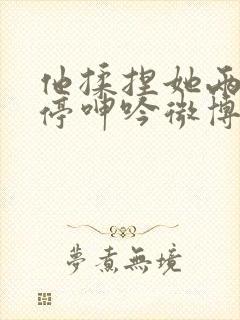 他揉捏她两
停呻吟微博
夢煮無境